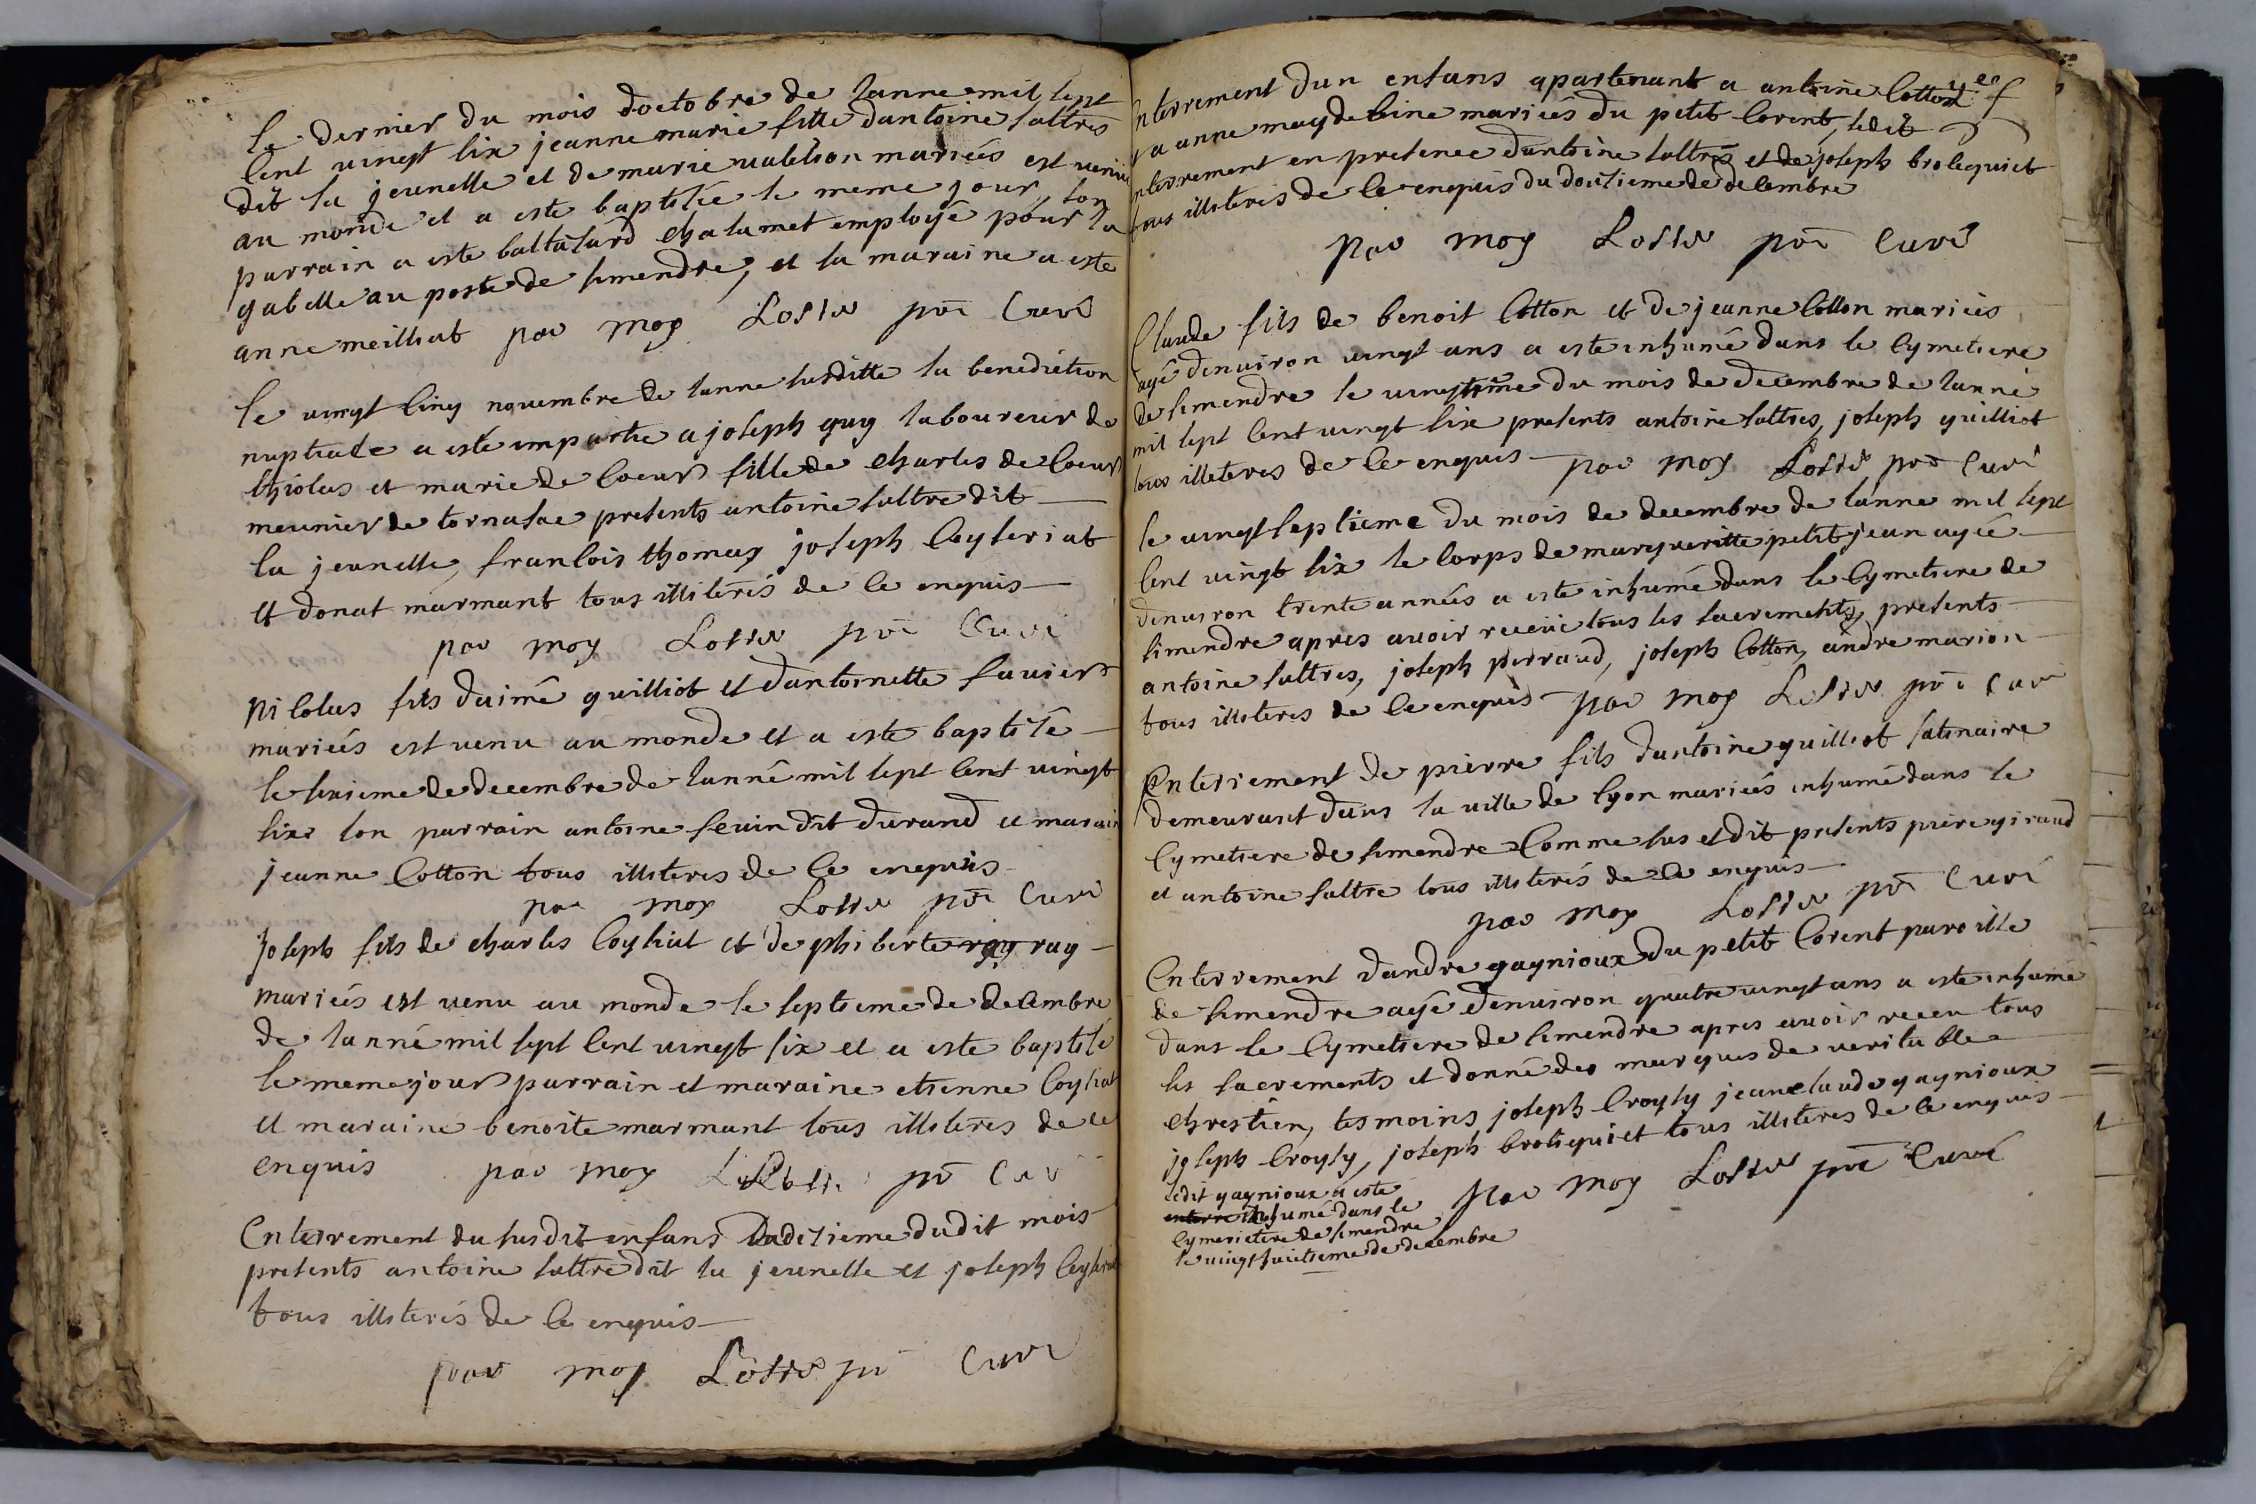 le dernier du mois doctobre de lanne mil sept
cent vingt six jeanne marie fille dantoine saltres
dit la jeunesse et de marie mariés est venue
au monde et a este baptisée le meme jour, son
parrain a este baltasard chalumet employé pour la
gabelle au poste de simendre, et la maraine a este
anne meilliat par moy pr̄e curé
le vingt cinq novembre de lanne susditte la benediction
nuptiale a esté impartie a joseph guy laboureur de
et marie de coeur fille de charles de coeur
meunier de tornasac presents antoine saltre dit
la jeunesse, francois thomas joseph ceyseriat
et donat marmant tous illiterés de ce enquis
par moy pr̄e curé
Nicolas fils daimé guilliot et dantoinette favier
mariés est venu au monde et a este baptisé
le sixieme de decembre de lanné mil sept cent vingt
six son parrain antoine sevin dit durand et marain
jeanne cotton tous illiteres de ce enquis
par moy pr̄e curé
joseph fils de charles coysiat et de phiberte ray
mariés est venu au monde le septieme de decembre
de lanné mil sept cent vingt six et a este baptisé
le meme jour parrain et maraine etienne coysiat
et maraine benoite marmant tous illiteres de ce
enquis par moy pr̄e curé
Enterrement du susdit enfans dudit mois
presents antoine saltre dit la jeunesse et joseph
tous illiterés de ce enquis
par moy pr̄e curé
Enterrement dun enfans apartenant a antoine cotton
et a anne maydeleine mariés du petit corent, ledit
enterrement en presence dantoine saltres et de joseph brolequiet
tous illiteres de ce enquis du douzieme de decembre
par moy pr̄e curé
Claude fils de benoit cotton et de jeanne cotton mariés
agé denviron vingt ans a este inhumé dans le cymetiere
de simendre le vingtieme du mois de decembre de lanné
mil sept cent vingt six presents antoine saltres, joseph guilliot
tous illiteres de ce enquis par moy pr̄e curé
le vingt septieme du mois de decembre de lanne mil sept
cent vingt six le corps de margueritte petitjean agée
denviron trente années a este inhumé dans le cymetiere de
simendre apres avoir receue tous les sacrements, presents
antoine saltres, joseph perraud, joseph cotton, andre marion
tous illiteres de ce enquis par moy pr̄e curé
Enterrement de pierre fils dantoine guilliot satinaire
demeurant dans la ville de lyon mariés inhumé dans le
cymetiere de simendre comme sus et dit presents piere giraud
et antoine saltre tous illiterés de ce enquis
par moy pr̄e curé
Enterrement dandre gagnioux du petit corent paroisse
de simendre agé denviron quatre vingt ans a este inhumé
dans le cymetiere de simendre apres avoir receu tous
les sacrements et donné des marques de veritable
chrestien, tesmoins joseph croysy jeanclaude gagnioux
joseph croysy, joseph brolequiet tous illiteres de ce enquis
par moy pr̄e curé
ledit gagnioux a este
enterré inhumé dans le
cymerietere de simendre
le vingt huitieme de decembre